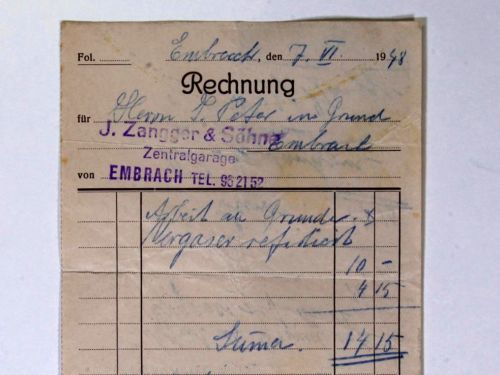 Fol. Embrach, den 7. VI. 1948
Rechnung
für Herrn Peter im Grund
J. Zangger & Söhne
Embrach
Zentralgarage
von EMBRACH TEL. 96 21 52
Arbeit an
Vergaser
10 –
4 15
Summa. 14 15